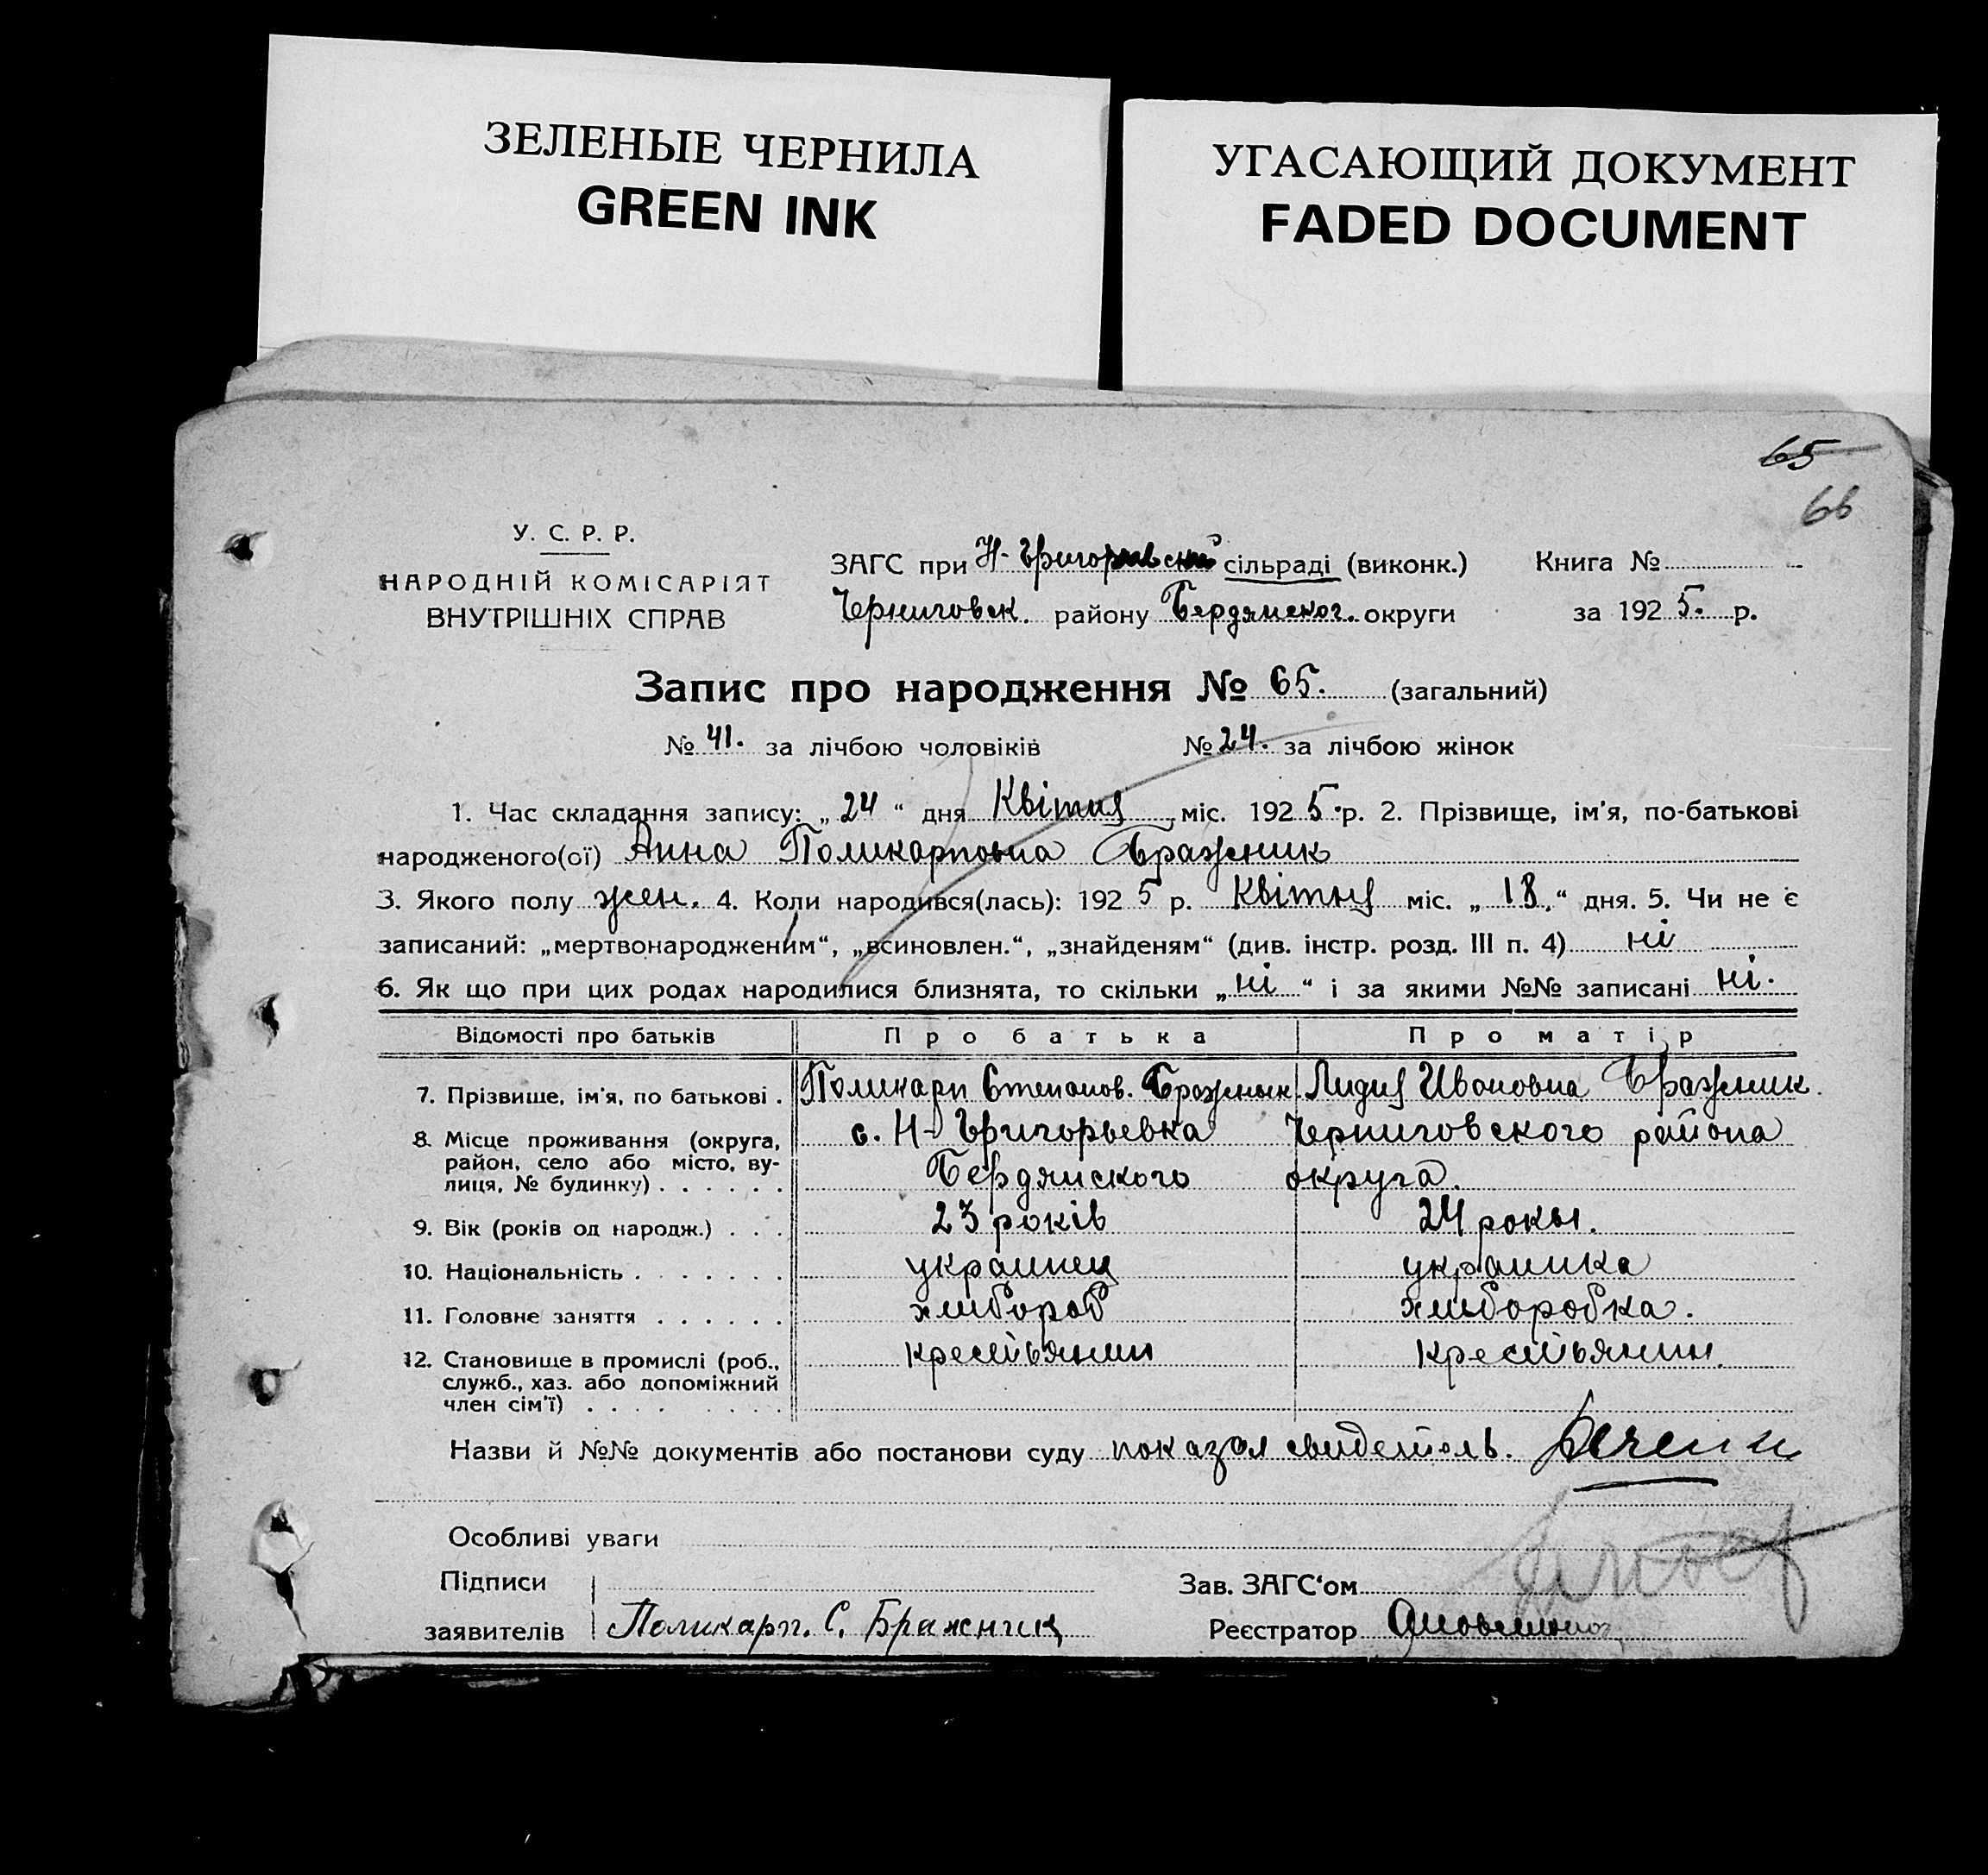 ЗЕЛЕНЫЕ ЧЕРНИЛА
GREEN INK
УГАСАЮЩИЙ ДОКУМЕНТ
FADED DOCUMENT
65
66
У. С. Р. Р.
НАРОДНІЙ КОМІСАРІЯТ
ВНУТРІШНІХ СПРАВ
ЗАГС при Н-Григоривский сільраді (виконк.) Книга №
Черниговск. району Бердянског. округи за 1925. р.
Запис про народження № 65. (загальний)
№ 41. за лічбою чоловіків № 24. за лічбою жінок
1. Час складання запису: „24“ дня Квітня міс. 1925 р. 2. Прізвище, ім'я, по-батькові
народженого(ої) Анна Поликарповна Бражник
3. Якого полу жен. 4. Коли народився(лась): 1925 р. Квітня міс. „18.“ дня. 5. Чи не є
записаний: „мертвонародженим“, „всиновлен.“, „знайденям“ (див. інстр. розд. III п. 4) ні
6. Як що при цих родах народилися близнята, то скільки „ні“ і за якими №№ записані ні.
Відомості про батьків Про батька Про матір
7. Прізвище, ім'я, по батькові . Поликарп Степанов. Бражнык Лидия Ивановна Бражник.
8. Місце проживання (округа, с. Н-Григорьевка Черниговского района
район, село або місто, ву-
лиця, № будинку) . . . . . . Бердянского округа.
9. Вік (років од народж.) . . . 23 років 24 рокы.
10. Національність . . . . . . . украинец украинка
11. Головне заняття . . . . . . хлибороб хлиборобка.
12. Становище в промислі (роб., крестьянин крестьянин.
служб., хаз. або допоміжний
член сім'ї) . . . . . . . .
Назви й №№ документів або постанови суду показал свидетель.
Особливі уваги
Підписи
заявителів Поликарп. С. Бражник
Зав. ЗАГС‘ом
Реєстратор